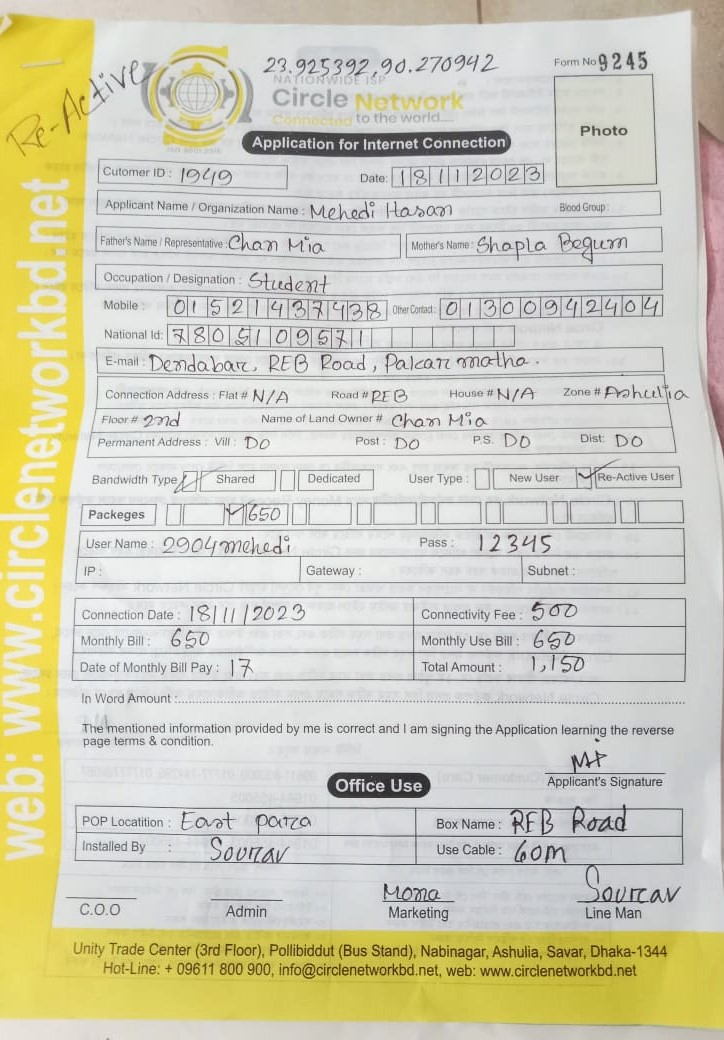 Re-Active
23.925392,90.270942
Form No 9245
NATIONWIDE ISP
Circle Network
Connected to the world....
ISO 9001:2015
Application for Internet Connection
Photo
Cutomer ID : 1949
Date: 18112023
Applicant Name / Organization Name : Mehedi Hasan Blood Group :
Father's Name / Representative : Chan Mia Mother's Name : Shapla Begum
Occupation / Designation : Student
Mobile : 01521437438 Other Contact : 01300942404
National Id: 7805109571
E-mail : Dendabar, REB Road, Palcar matha.
Connection Address : Flat # N/A Road # REB House # N/A Zone # Ashulia
Floor # 2nd Name of Land Owner # Chan Mia
Permanent Address : Vill : DO Post : DO P.S. DO Dist: DO
Bandwidth Type Shared Dedicated User Type : New User Re-Active User
Packeges 650
User Name : 2904mehedi Pass : 12345
IP : Gateway : Subnet :
Connection Date : 18/11/2023 Connectivity Fee : 500
Monthly Bill : 650 Monthly Use Bill : 650
Date of Monthly Bill Pay : 17 Total Amount : 1,150
In Word Amount :
The mentioned information provided by me is correct and I am signing the Application learning the reverse
page terms & condition.
Applicant's Signature
Office Use
POP Locatition : East para Box Name : REB Road
Installed By : Sourav Use Cable : 60m
Mona Sourav
C.O.O Admin Marketing Line Man
Unity Trade Center (3rd Floor), Pollibiddut (Bus Stand), Nabinagar, Ashulia, Savar, Dhaka-1344
Hot-Line: + 09611 800 900, info@circlenetworkbd.net, web: www.circlenetworkbd.net
web: www.circlenetworkbd.net